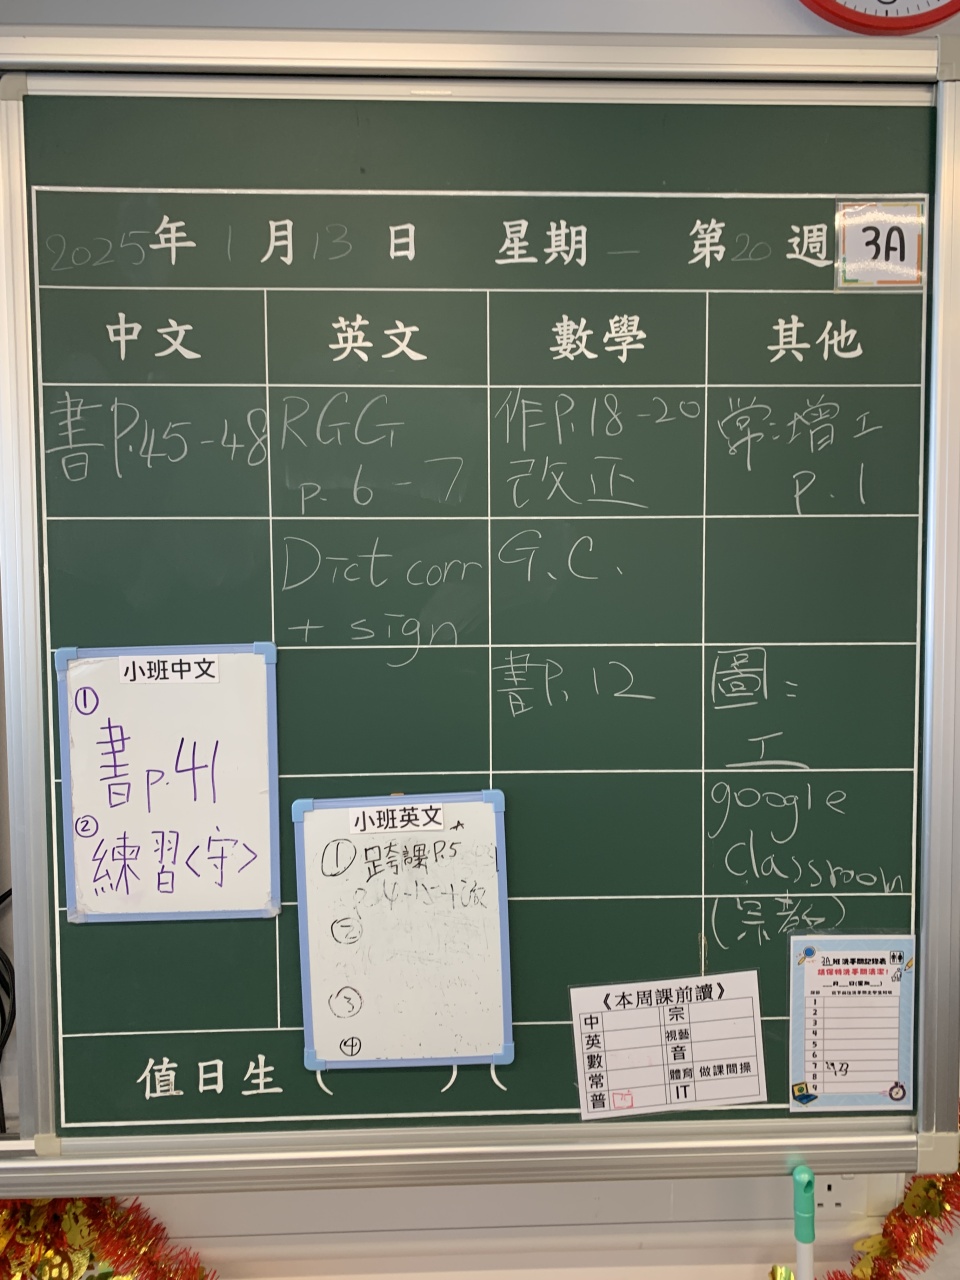 2025年1月13日 星期一 第20週 3A
中文 英文 數學 其他
書P.45-48
RGG
p.6-7
Dict corr
+ sign
作P.18-20
改正
G.C.
書P.12
常:增工
p.1
圖:
工
google
classroom
(宗教)
小班中文
①
書p.41
②
練習<守>
小班英文
①跨課P.5
②
③
④
值日生 ( ) (
《本周課前讀》
中 宗
英 視藝
數 音
常 體育 做課間操
普 IT
3A班洗手間記錄表
請保持洗手間清潔!
1
2
3
4
5
6
7
8
9